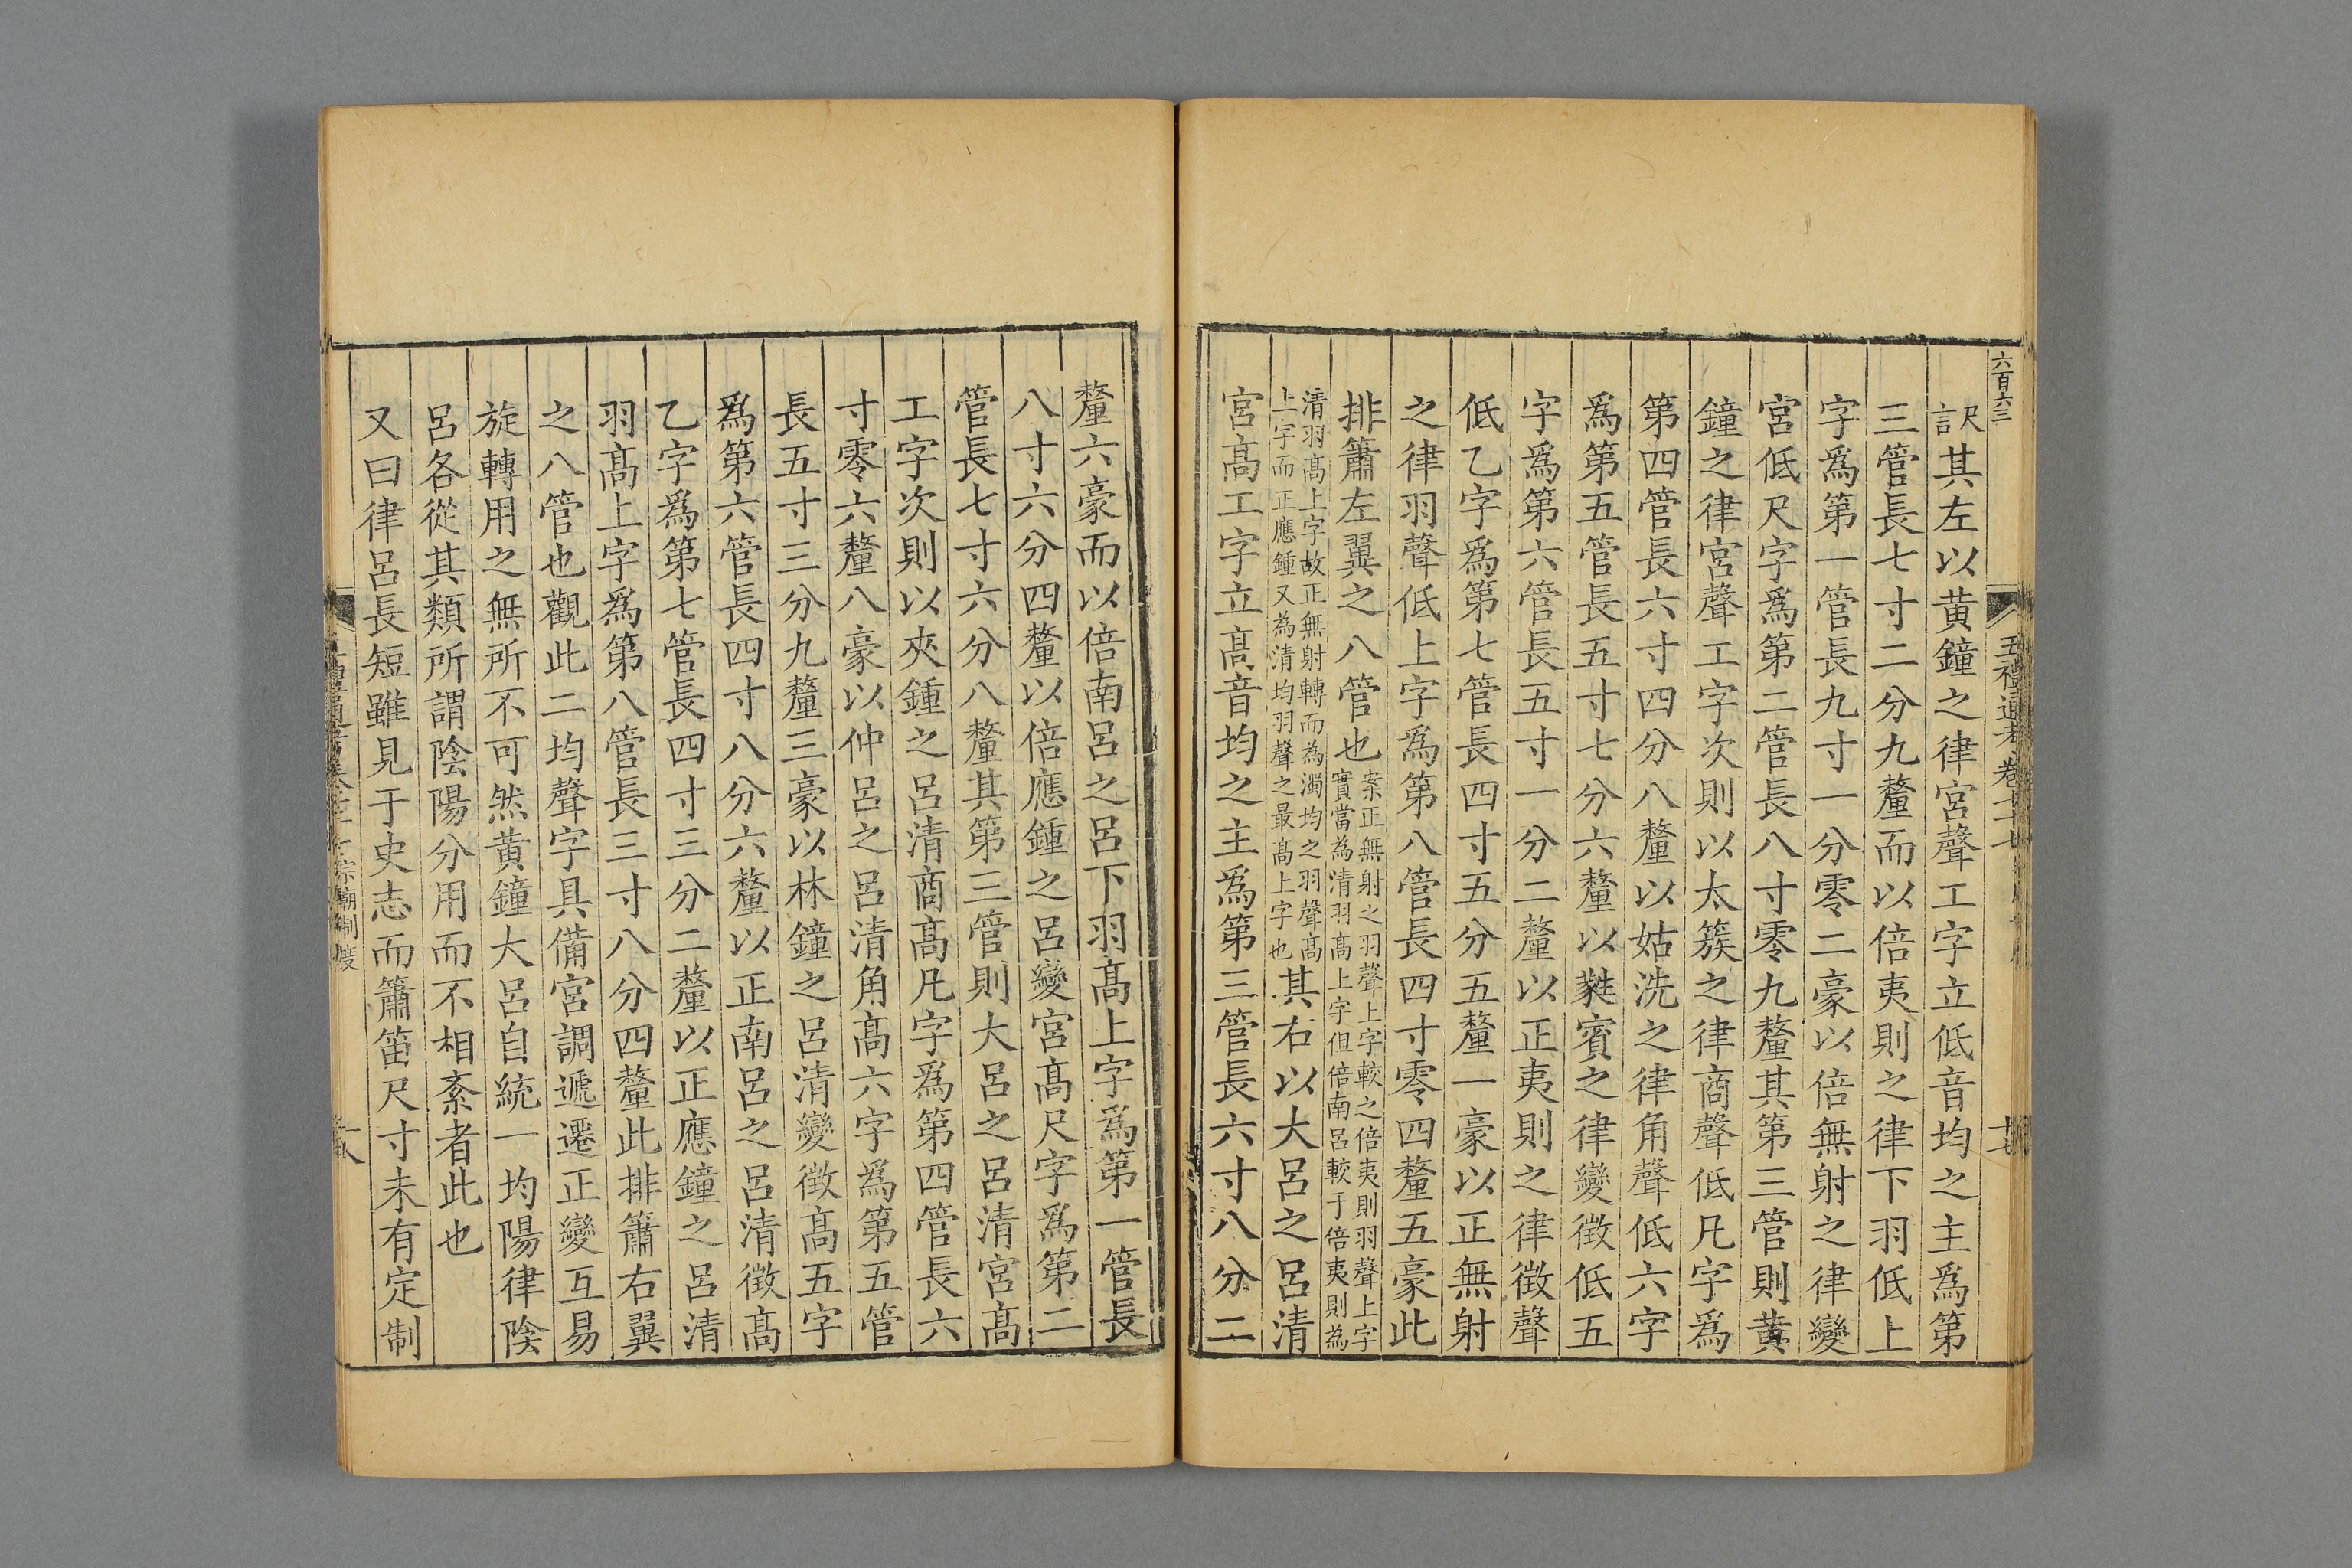 六百六三
尺言其左以黄鐘之律宮聲工字立低音均之主爲第
三管長七寸二分九釐而以倍夷則之律下羽低上
字爲第一管長九寸一分零二豪以倍無射之律變
宮低尺字爲第二管長八寸零九釐其第三管則黄
鐘之律宮聲工字次則以太簇之律商聲低凡字爲
第四管長六寸四分八釐以姑洗之律角聲低六字
爲第五管長五寸七分六釐以蕤賓之律變徵低五
字爲第六管長五寸一分二釐以正夷則之律徵聲
低乙字爲第七管長四寸五分五釐一豪以正無射
之律羽聲低上字爲第八管長四寸零四釐五豪此
排簫左翼之八管也案正無射之羽聲上字較之倍夷則羽聲上字
實當為清羽髙上字但倍南呂較于倍夷則為
清羽髙上字故正無射轉而為濁均之羽聲髙
上字而正應鍾又為清均羽聲之最髙上字也其右以大呂之呂清
宮髙工字立髙音均之主爲第三管長六寸八分二
釐六豪而以倍南呂之呂下羽髙上字爲第一管長
八寸六分四釐以倍應鍾之呂變宮髙尺字爲第二
管長七寸六分八釐其第三管則大呂之呂清宮髙
工字次則以夾鍾之呂清商髙凡字爲第四管長六
寸零六釐八豪以仲呂之呂清角髙六字爲第五管
長五寸三分九釐三豪以林鐘之呂清變徵髙五字
爲第六管長四寸八分六釐以正南呂之呂清徵髙
乙字爲第七管長四寸三分二釐以正應鐘之呂清
羽髙上字爲第八管長三寸八分四釐此排簫右翼
之八管也觀此二均聲字具備宮調遞遷正變互易
旋轉用之無所不可然黄鐘大呂自統一均陽律陰
呂各從其類所謂陰陽分用而不相紊者此也
又曰律呂長短雖見于史志而簫笛尺寸未有定制